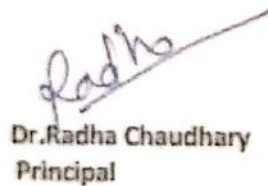 Radha
Dr.Radha Chaudhary
Principal